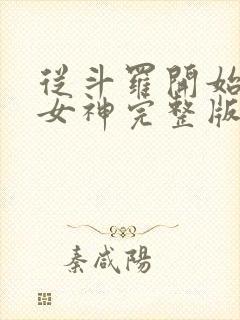 從斗羅開始
女神完整版
秦咸陽